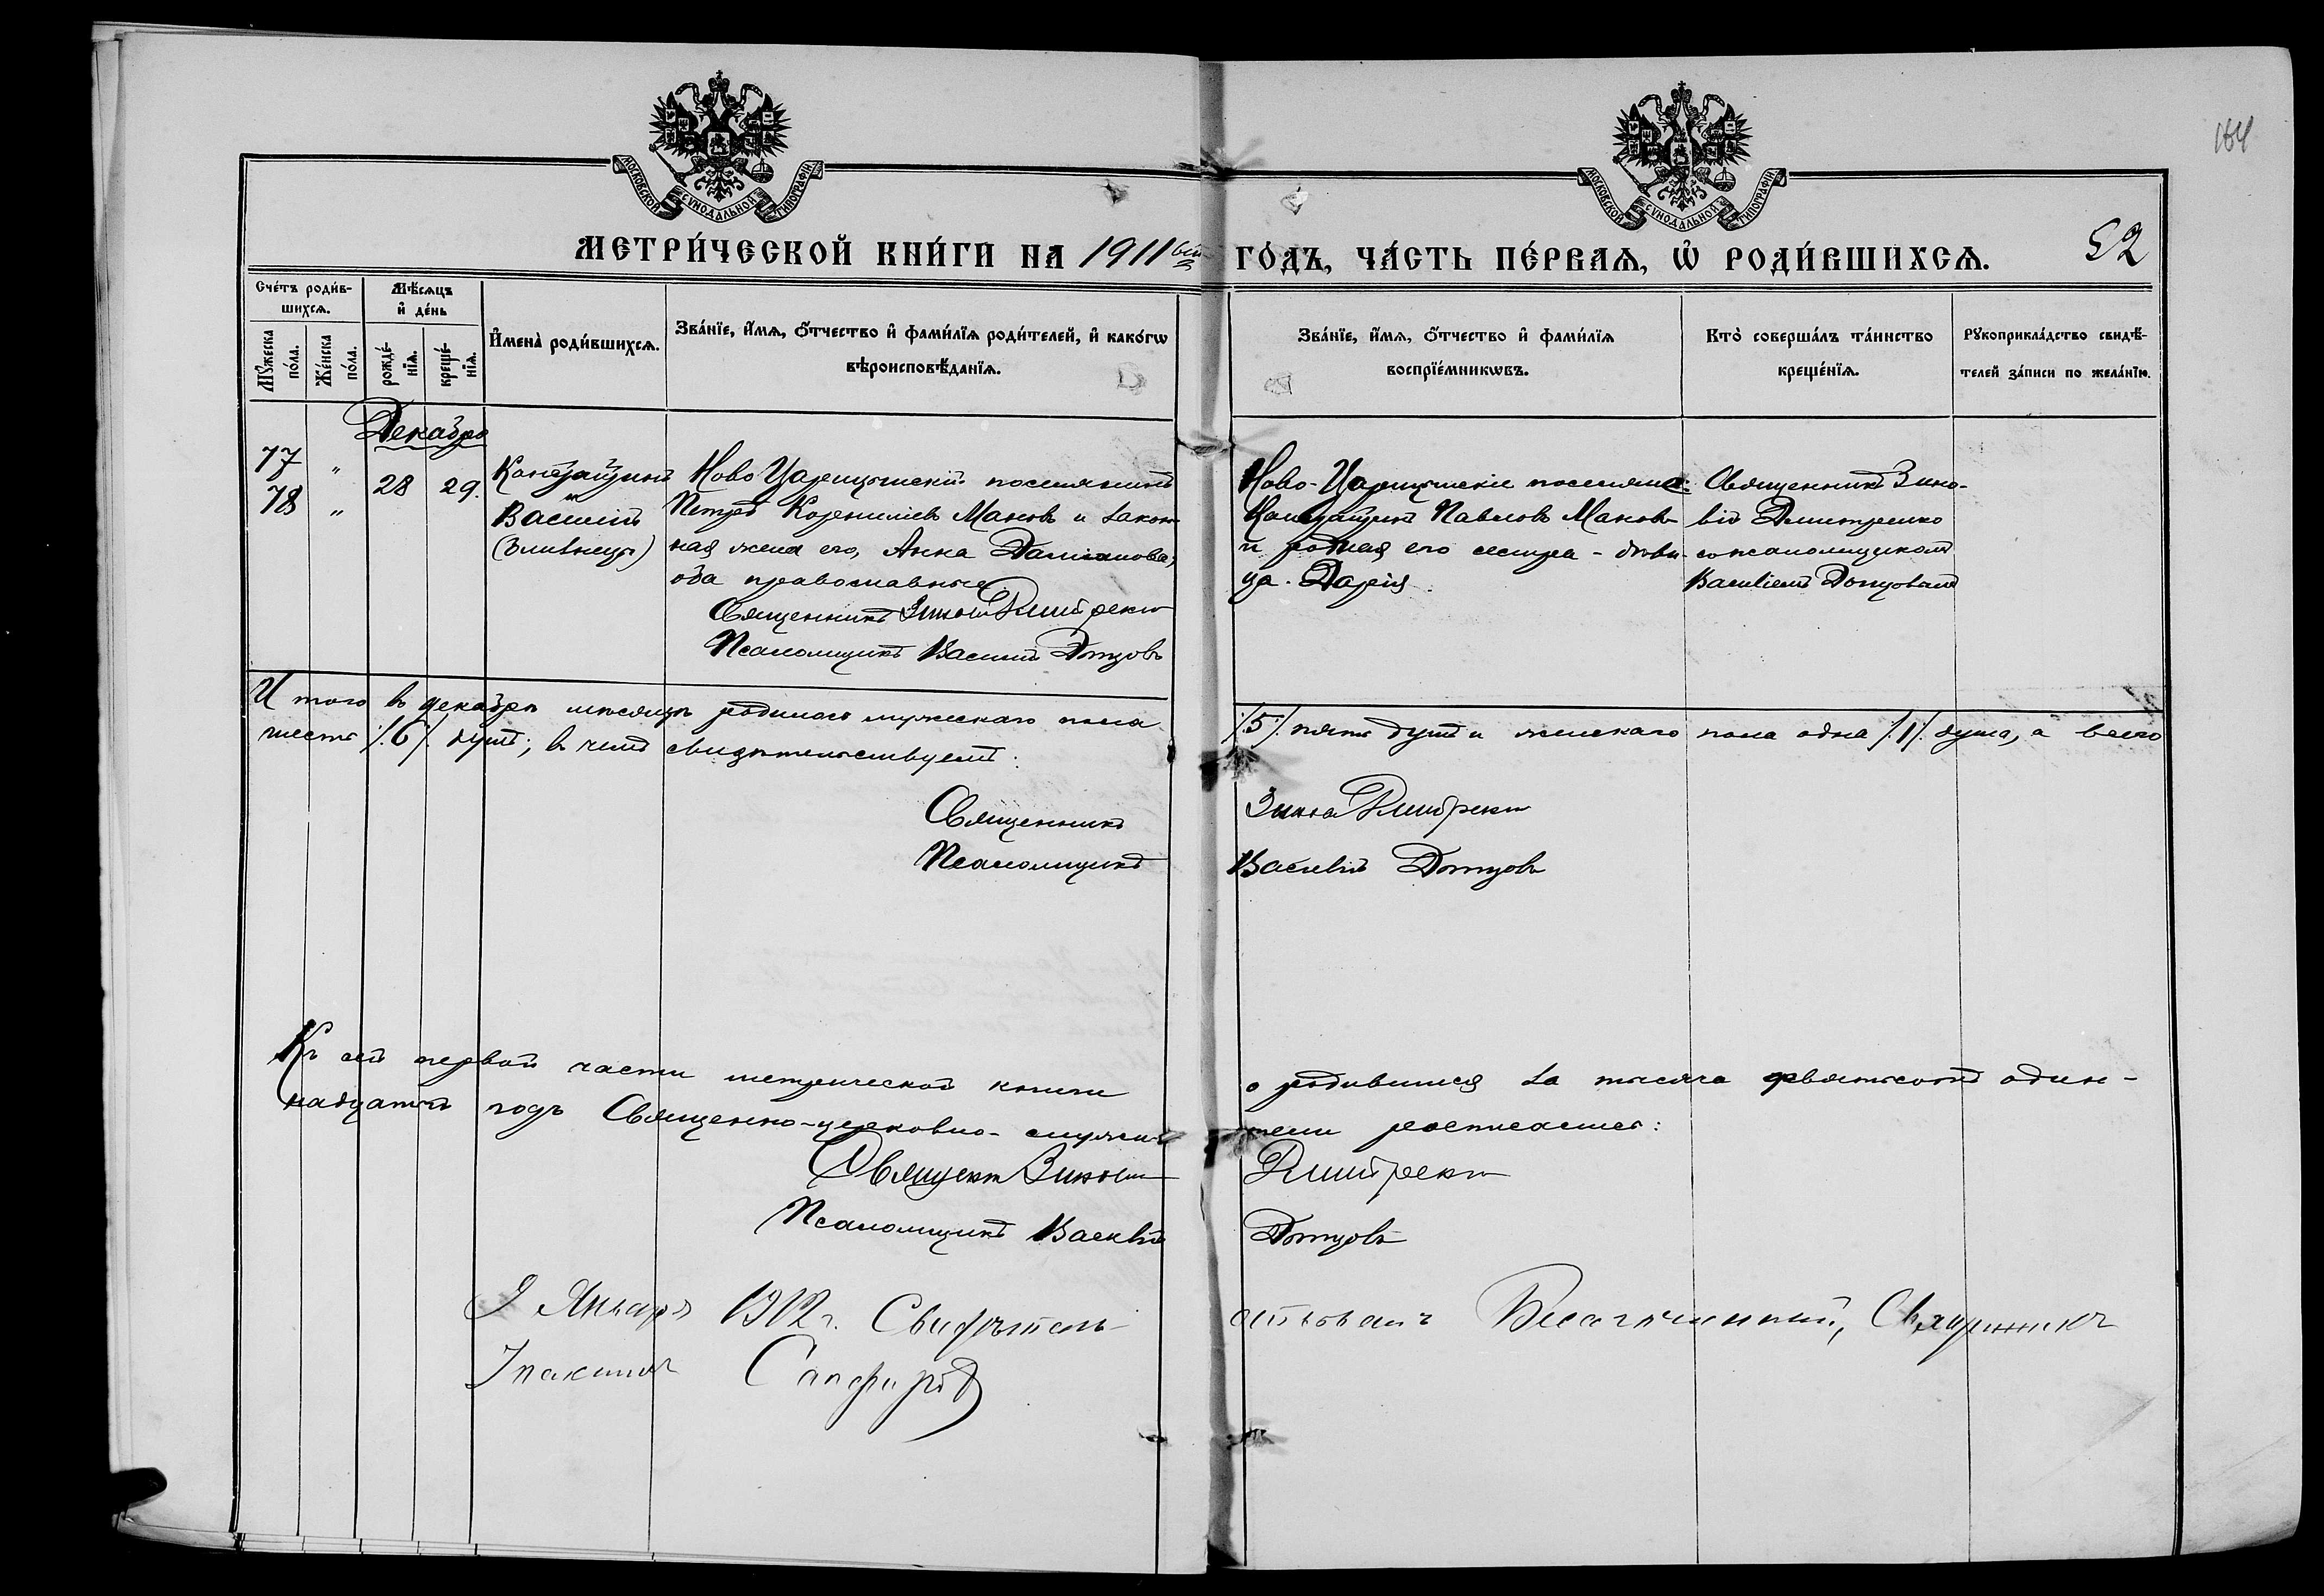 164
МОСКОВСКОЙ СУНОДАЛЬНОЙ ТИПОГРАФІИ
МОСКОВСКОЙ СУНОДАЛЬНОЙ ТИПОГРАФІИ
МЕТРИ́ЧЕСКОЙ КНИ́ГИ НА 1911 ГО́ДЪ, ЧА́СТЬ ПЕ́РВАѦ, Ѽ РОДИ́ВШИХСѦ.
52
Сче́тъ роди́в-
шихсѧ.
Мѣ́сѧцъ
и҆ де́нь
Мꙋ́жеска
по́ла.
Же́нска
по́ла.
рожде́-
нїѧ.
креще́-
нїѧ.
И҆мена̀ роди́вшихсѧ.
Зва́нїе, и҆́мѧ, ѻ҆́тчество и҆ фами́лїѧ роди́телей, и҆ како́гѡ
вѣроисповѣ́данїѧ.
Зва́нїе, и҆́мѧ, ѻ҆́тчество и҆ фами́лїѧ
воспрїе́мникѡвъ.
Кто̀ соверша́лъ та́инство
креще́нїѧ.
Рꙋкоприкла́дство свидѣ́-
телей за́писи по жела́нїю.
Декабрь
77 "
78 "
28 29.
и
Василій
(близнецы)
Ново Царицынскій поселянинъ
Петръ Корниліевъ Маковъ и закон-
ная жена его, Анна Даміанова,
оба православные
Священникъ Зиновій Дмитренко
Псаломщикъ Василій Донцовъ
Ново-Царицынскіе поселяне:
Павловъ Маковъ
и родная его сестра - дѣви-
ца Дарія.
Священникъ Зино-
вій Дмитренко
съ псаломщикомъ
Василіемъ Донцовымъ
Итого въ декабрѣ мѣсяцѣ родилось мужескаго пола /:5:/ пять душъ и женскаго пола одна /:1:/ душа, а всего
шесть /:6:/ душъ; въ чемъ свидѣтельствуемъ:
Священникъ Зиновій Дмитренко
Псаломщикъ Василій Донцовъ
Къ сей первой части метрической книги о родившихся за тысяча девятьсотъ один-
надцатый годъ Священно-церковно-служители росписались:
Священникъ Зиновій Дмитренко
Псаломщикъ Василій Донцовъ
Января 1912 г. Свидѣтельствовалъ Благочинный, Священникъ
Сапфировъ